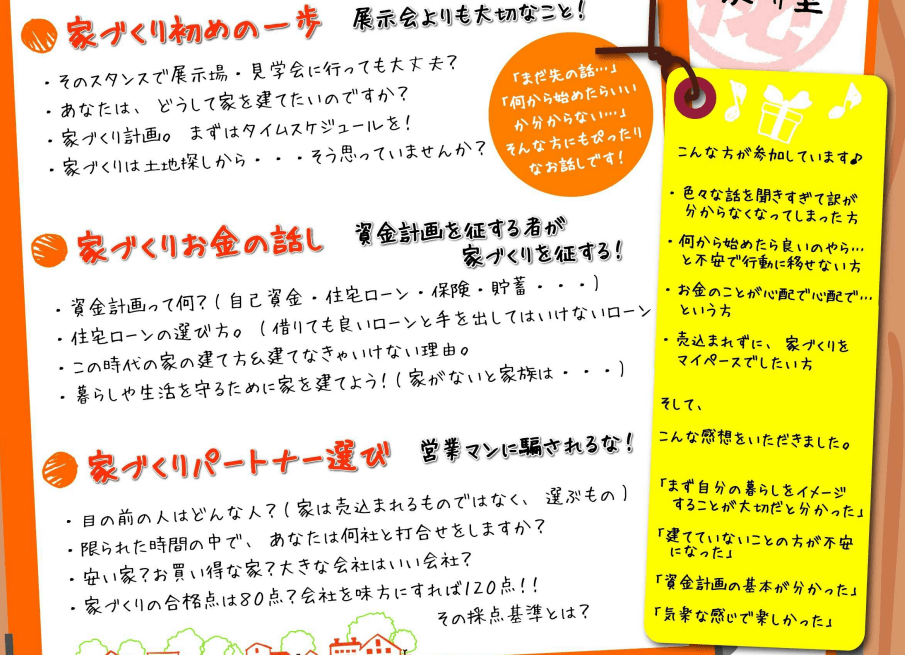 家づくり初めの一歩 展示会よりも大切なこと!
・そのスタンスで展示場・見学会に行っても大丈夫?
・あなたは、どうして家を建てたいのですか?
・家づくり計画。まずはタイムスケジュールを!
・家づくりは土地探しから・・・そう思っていませんか?
「まだ先の話…」
「何から始めたらいい
か分からない…」
そんな方にもぴったり
なお話しです!
家づくりお金の話し 資金計画を征する者が
家づくりを征する!
・資金計画って何?(自己資金・住宅ローン・保険・貯蓄・・・)
・住宅ローンの選び方。(借りても良いローンと手を出してはいけないローン
・この時代の家の建て方&建てなきゃいけない理由。
・暮らしや生活を守るために家を建てよう!(家がないと家族は・・・)
家づくりパートナー選び 営業マンに騙されるな!
・目の前の人はどんな人?(家は売込まれるものではなく、選ぶもの)
・限られた時間の中で、あなたは何社と打合せをしますか?
・安い家?お買い得な家?大きな会社はいい会社?
・家づくりの合格点は80点?会社を味方にすれば120点!!
その採点基準とは?
こんな方が参加しています♪
・色々な話を聞きすぎて訳が
分からなくなってしまった方
・何から始めたら良いのやら…
と不安で行動に移せない方
・お金のことが心配で心配で…
という方
・売込まれずに、家づくりを
マイペースでしたい方
そして、
こんな感想をいただきました。
「まず自分の暮らしをイメージ
することが大切だと分かった」
「建てていないことの方が不安
になった」
「資金計画の基本が分かった」
「気楽な感じで楽しかった」